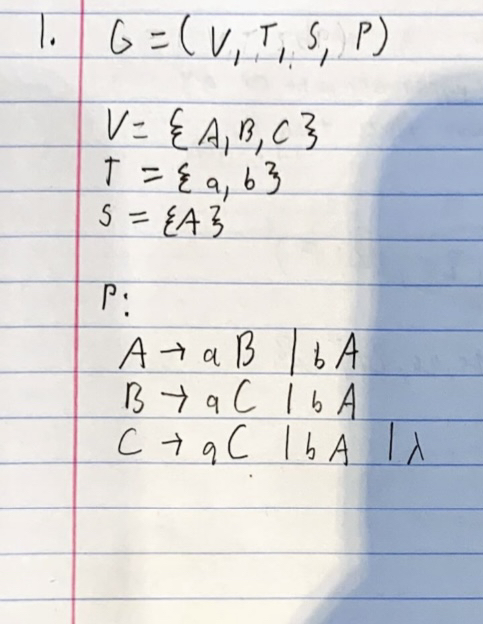 1. G = ( V, T, S, P)
V = { A, B, C }
T = { a, b }
S = {A}
P:
A → a B | b A
B → a C | b A
C → a C | b A | λ